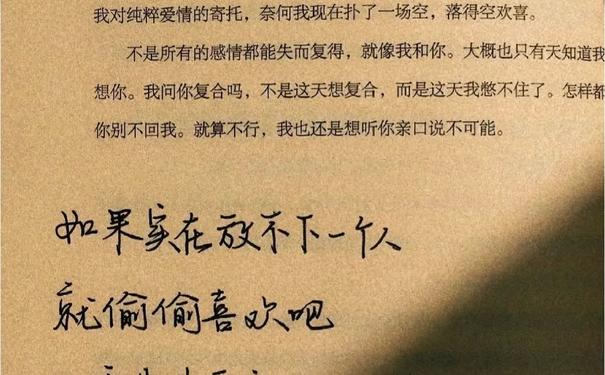 我对纯粹爱情的寄托，奈何我现在扑了一场空，落得空欢喜。
不是所有的感情都能失而复得，就像我和你。大概也只有天知道我
想你。我问你复合吗，不是这天想复合，而是这天我憋不住了。怎样都
你别不回我。就算不行，我也还是想听你亲口说不可能。
如果实在放不下一个人
就偷偷喜欢吧